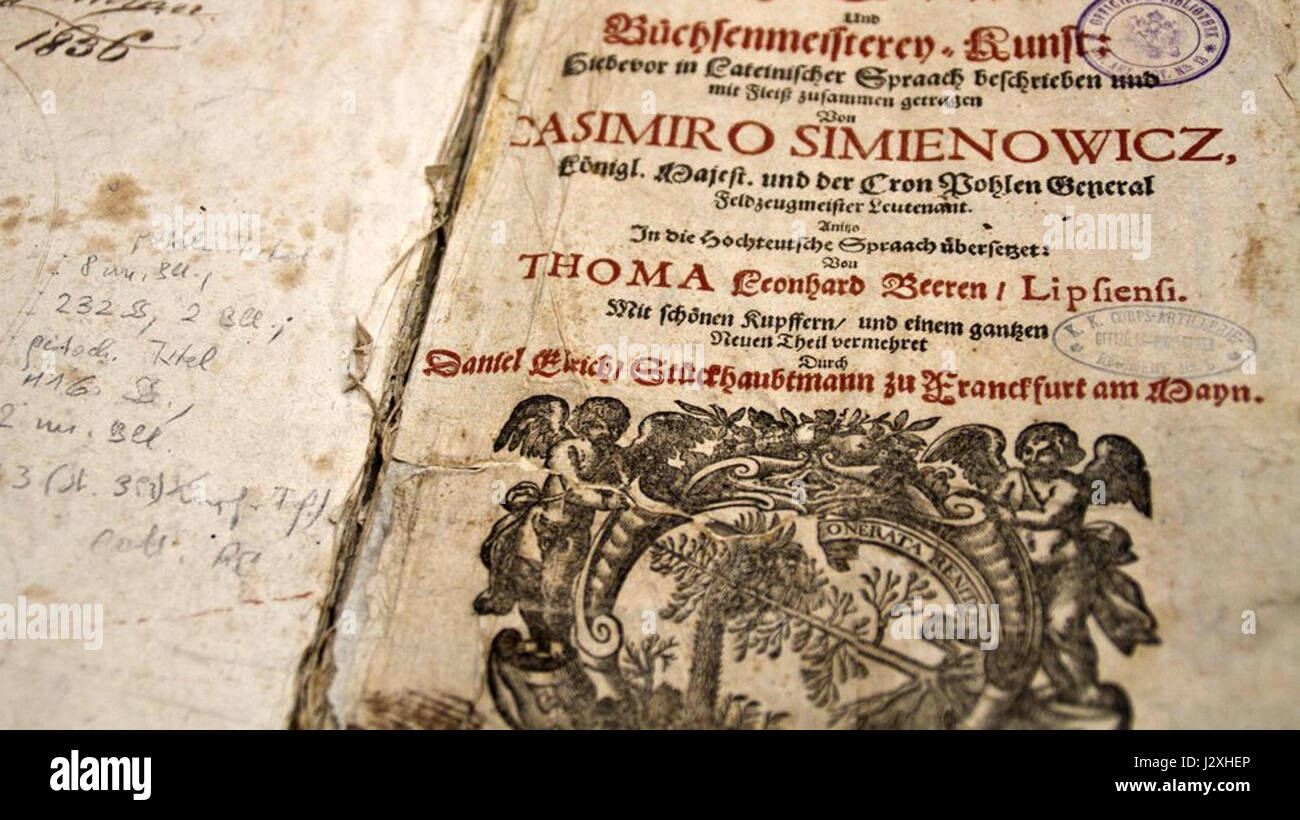 1836
8 un. Bll.,
232 S, 2 Bll.;
Titel
416 S.,
2 un. Bll.
Und
Büchsenmeisterey-Kunst:
Hiebevor in Lateinischer Spraach beschrieben und
mit Fleiß zusammen getragen
Von
CASIMIRO SIMIENOWICZ,
Königl. Majest. und der Cron Pohlen General
Feldzeugmeister Leutenant.
Anitzo
In die Hochteutsche Spraach übersetzet:
Von
THOMA Leonhard Beeren / Lipsiensi.
Mit schönen Kupffern/ und einem gantzen
Neuen Theil vermehret
Durch
Daniel Elrich, Stückhaubtmann zu Franckfurt am Mayn.
ONERATA RENITI
K. K. CORPS-ARTILLERIE
alamy stock photo
J2XHEP
www.alamy.com